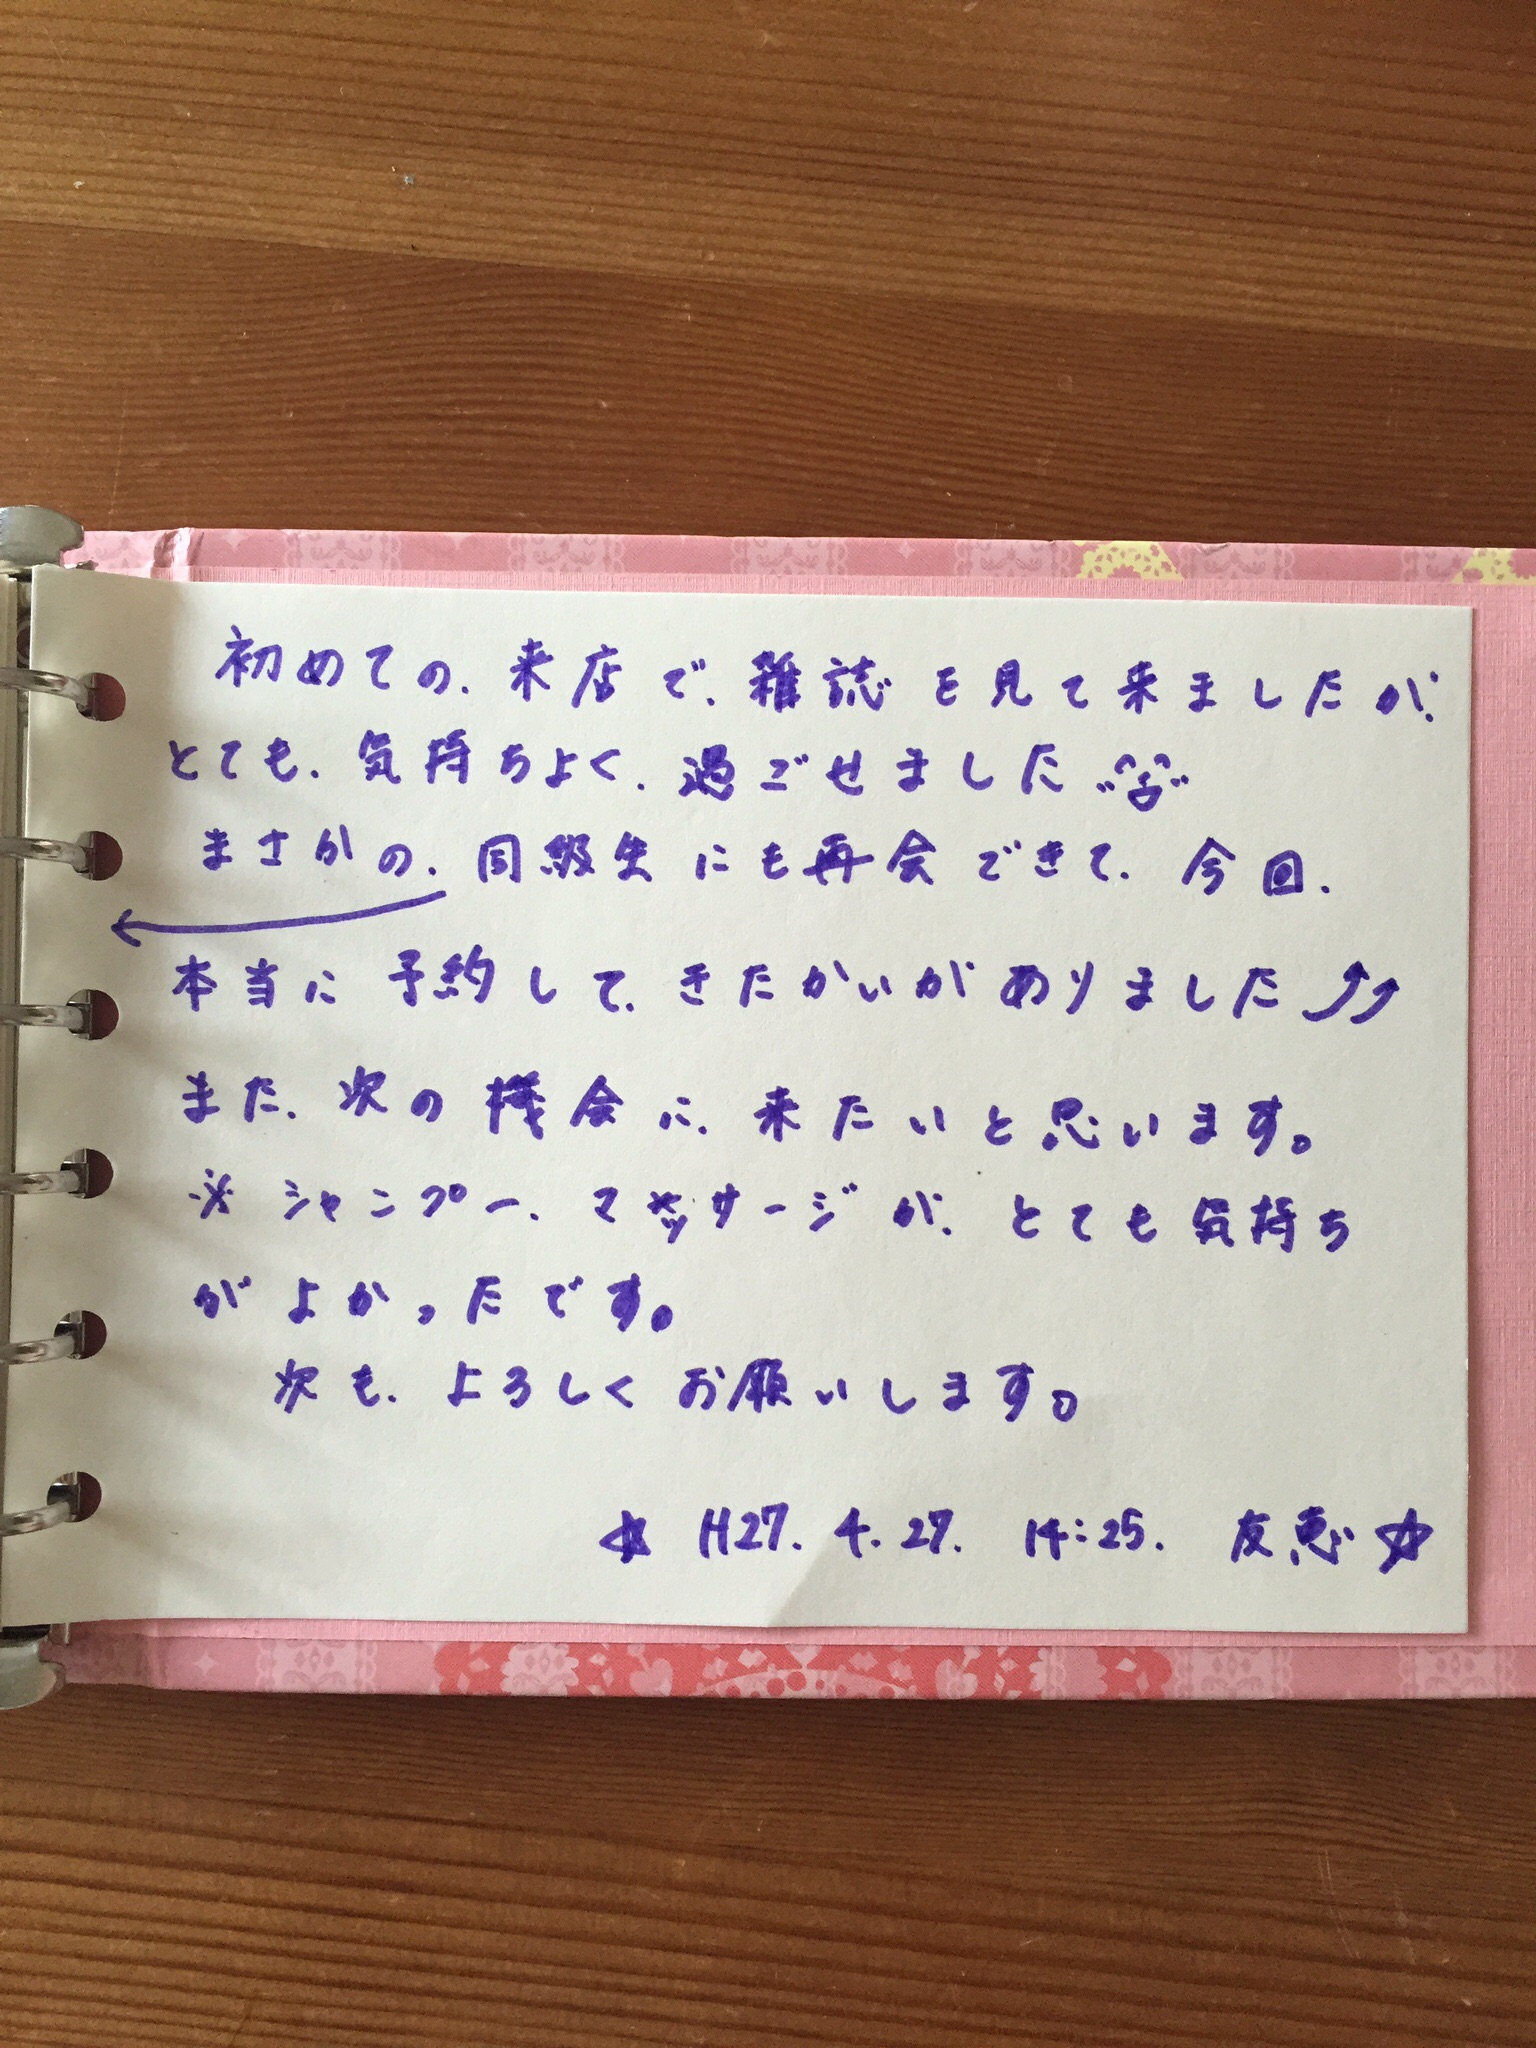 初めての、来店で、雑誌を見て来ましたが、
とても、気持ちよく、過ごせました
まさかの、同級生にも再会できて、今回、
本当に予約して、きたかいがありました⤴⤴
また、次の機会に、来たいと思います。
※シャンプー、マッサージが、とても気持ち
がよかったです。
次も、よろしくお願いします。
☆ H27. 4. 27. 14:25. 友恵☆